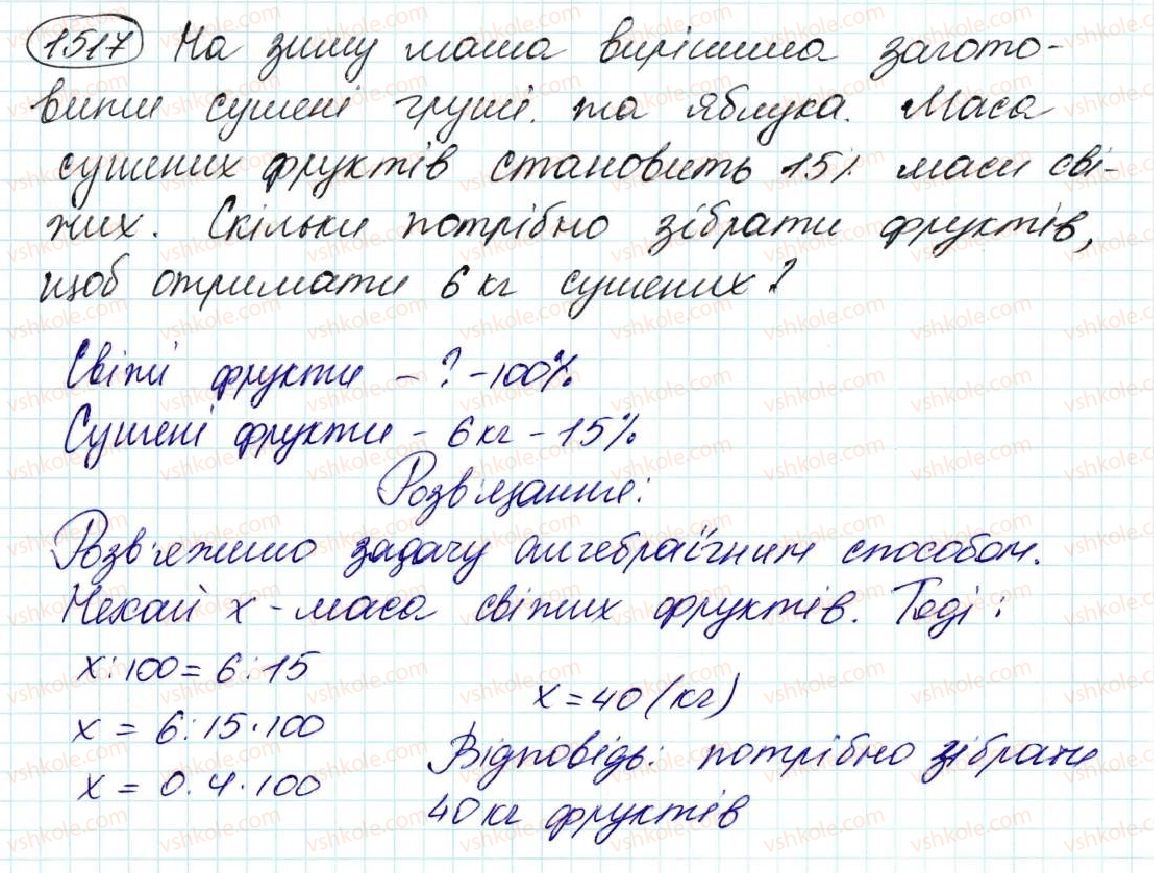 1517 На зиму маша вирішила загото-
вити сушені груші. та яблука. Маса
сушених фруктів становить 15% маси сві-
жих. Скільки потрібно зібрати фруктів,
щоб отримати 6 кг сушених?
Свіжі фрукти - ? - 100%
Сушені фрукти - 6 кг - 15%
Розв'язання:
Розв'яжимо задачу алгебраїчним способом.
Нехай x - маса свіжих фруктів. Тоді:
x:100 = 6:15
x = 6:15·100
x = 0.4·100
x = 40 (кг)
Відповідь: потрібно зібрати
40 кг фруктів